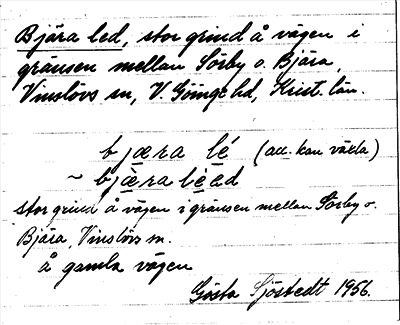 Bjära led, stor grind å vägen i
gränsen mellan Sörby o. Bjära,
Vinslövs sn, V. Göinge hd, Krist. län.
bjæra lé (acc. kan växla)
~ bjæ̀ra lèad
stor grind å vägen i gränsen mellan Sörby o.
Bjära, Vinslövs sn.
å gamla vägen
Gösta Sjöstedt 1956.